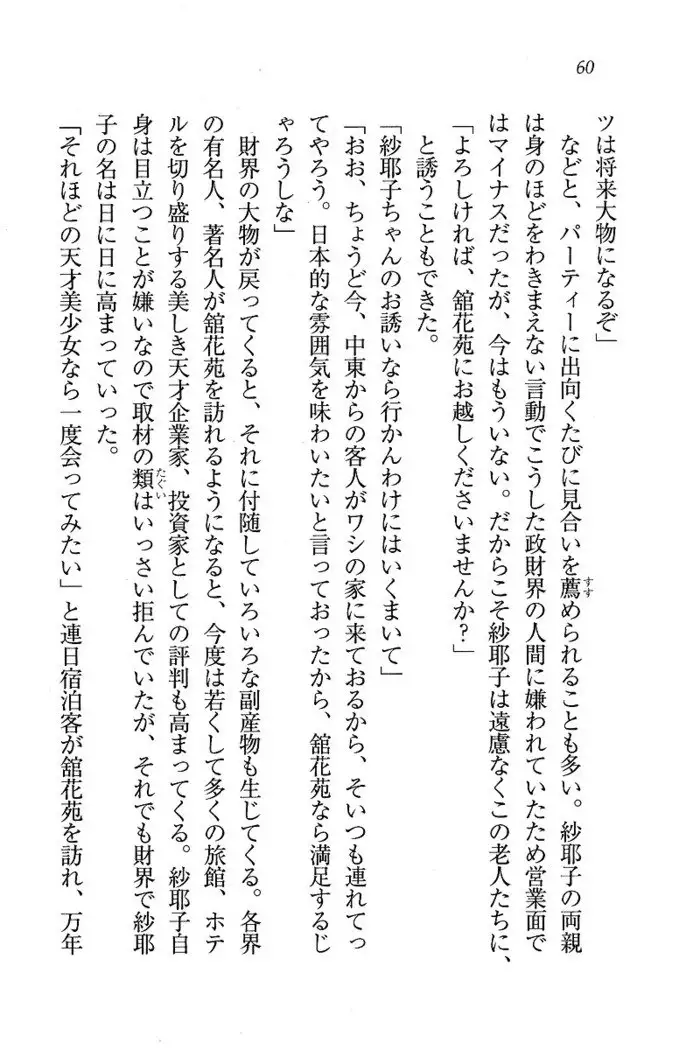 60
ツは将来大物になるぞ」
などと、パーティーに出向くたびに見合いを薦められることも多い。紗耶子の両親
は身のほどをわきまえない言動でこうした政財界の人間に嫌われていたため営業面で
はマイナスだったが、今はもういない。だからこそ紗耶子は遠慮なくこの老人たちに、
「よろしければ、舘花苑にお越しくださいませんか？」
と誘うこともできた。
「紗耶子ちゃんのお誘いなら行かんわけにはいくまいて」
「おお、ちょうど今、中東からの客人がワシの家に来ておるから、そいつも連れてっ
てやろう。日本的な雰囲気を味わいたいと言っておったから、舘花苑なら満足するじ
ゃろうしな」
財界の大物が戻ってくると、それに付随していろいろな副産物も生じてくる。各界
の有名人、著名人が舘花苑を訪れるようになると、今度は若くして多くの旅館、ホテ
ルを切り盛りする美しき天才企業家、投資家としての評判も高まってくる。紗耶子自
身は目立つことが嫌いなので取材の類はいっさい拒んでいたが、それでも財界で紗耶
子の名は日に日に高まっていった。
「それほどの天才美少女なら一度会ってみたい」と連日宿泊客が舘花苑を訪れ、万年
すす
たぐい